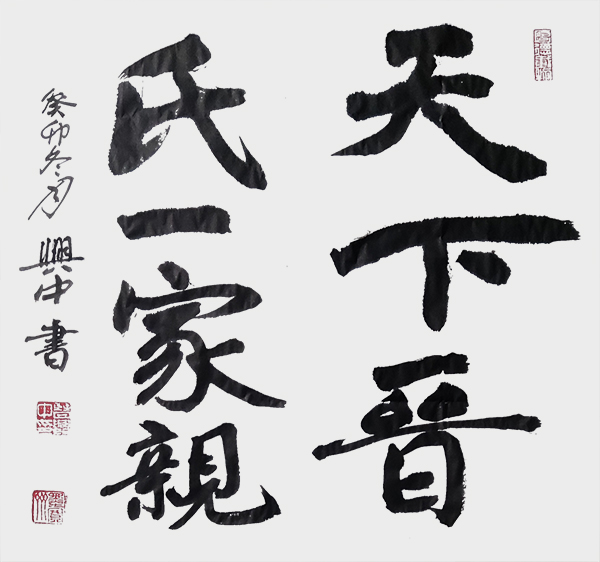 天下晉
氏一家親
癸卯冬月興中書